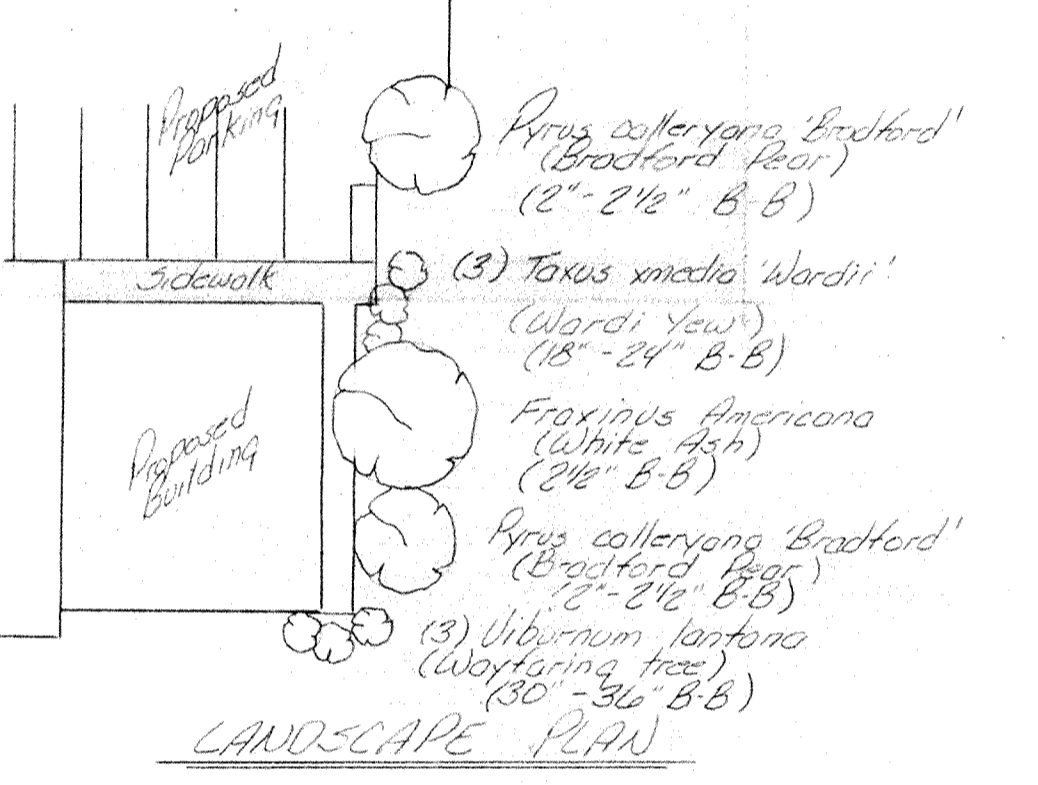 Proposed
Parking
Pyrus calleryana 'Bradford'
(Bradford Pear)
(2"-2½" B-B)
Sidewalk
(3) Taxus xmedia 'Wardii'
(Wardi Yew)
(18"-24" B-B)
Fraxinus Americana
(White Ash)
(2½" B-B)
Proposed
Building
Pyrus calleryana 'Bradford'
(Bradford Pear)
(2"-2½" B-B)
(3) Viburnum lantana
(Wayfaring tree)
(30"-36" B-B)
LANDSCAPE PLAN